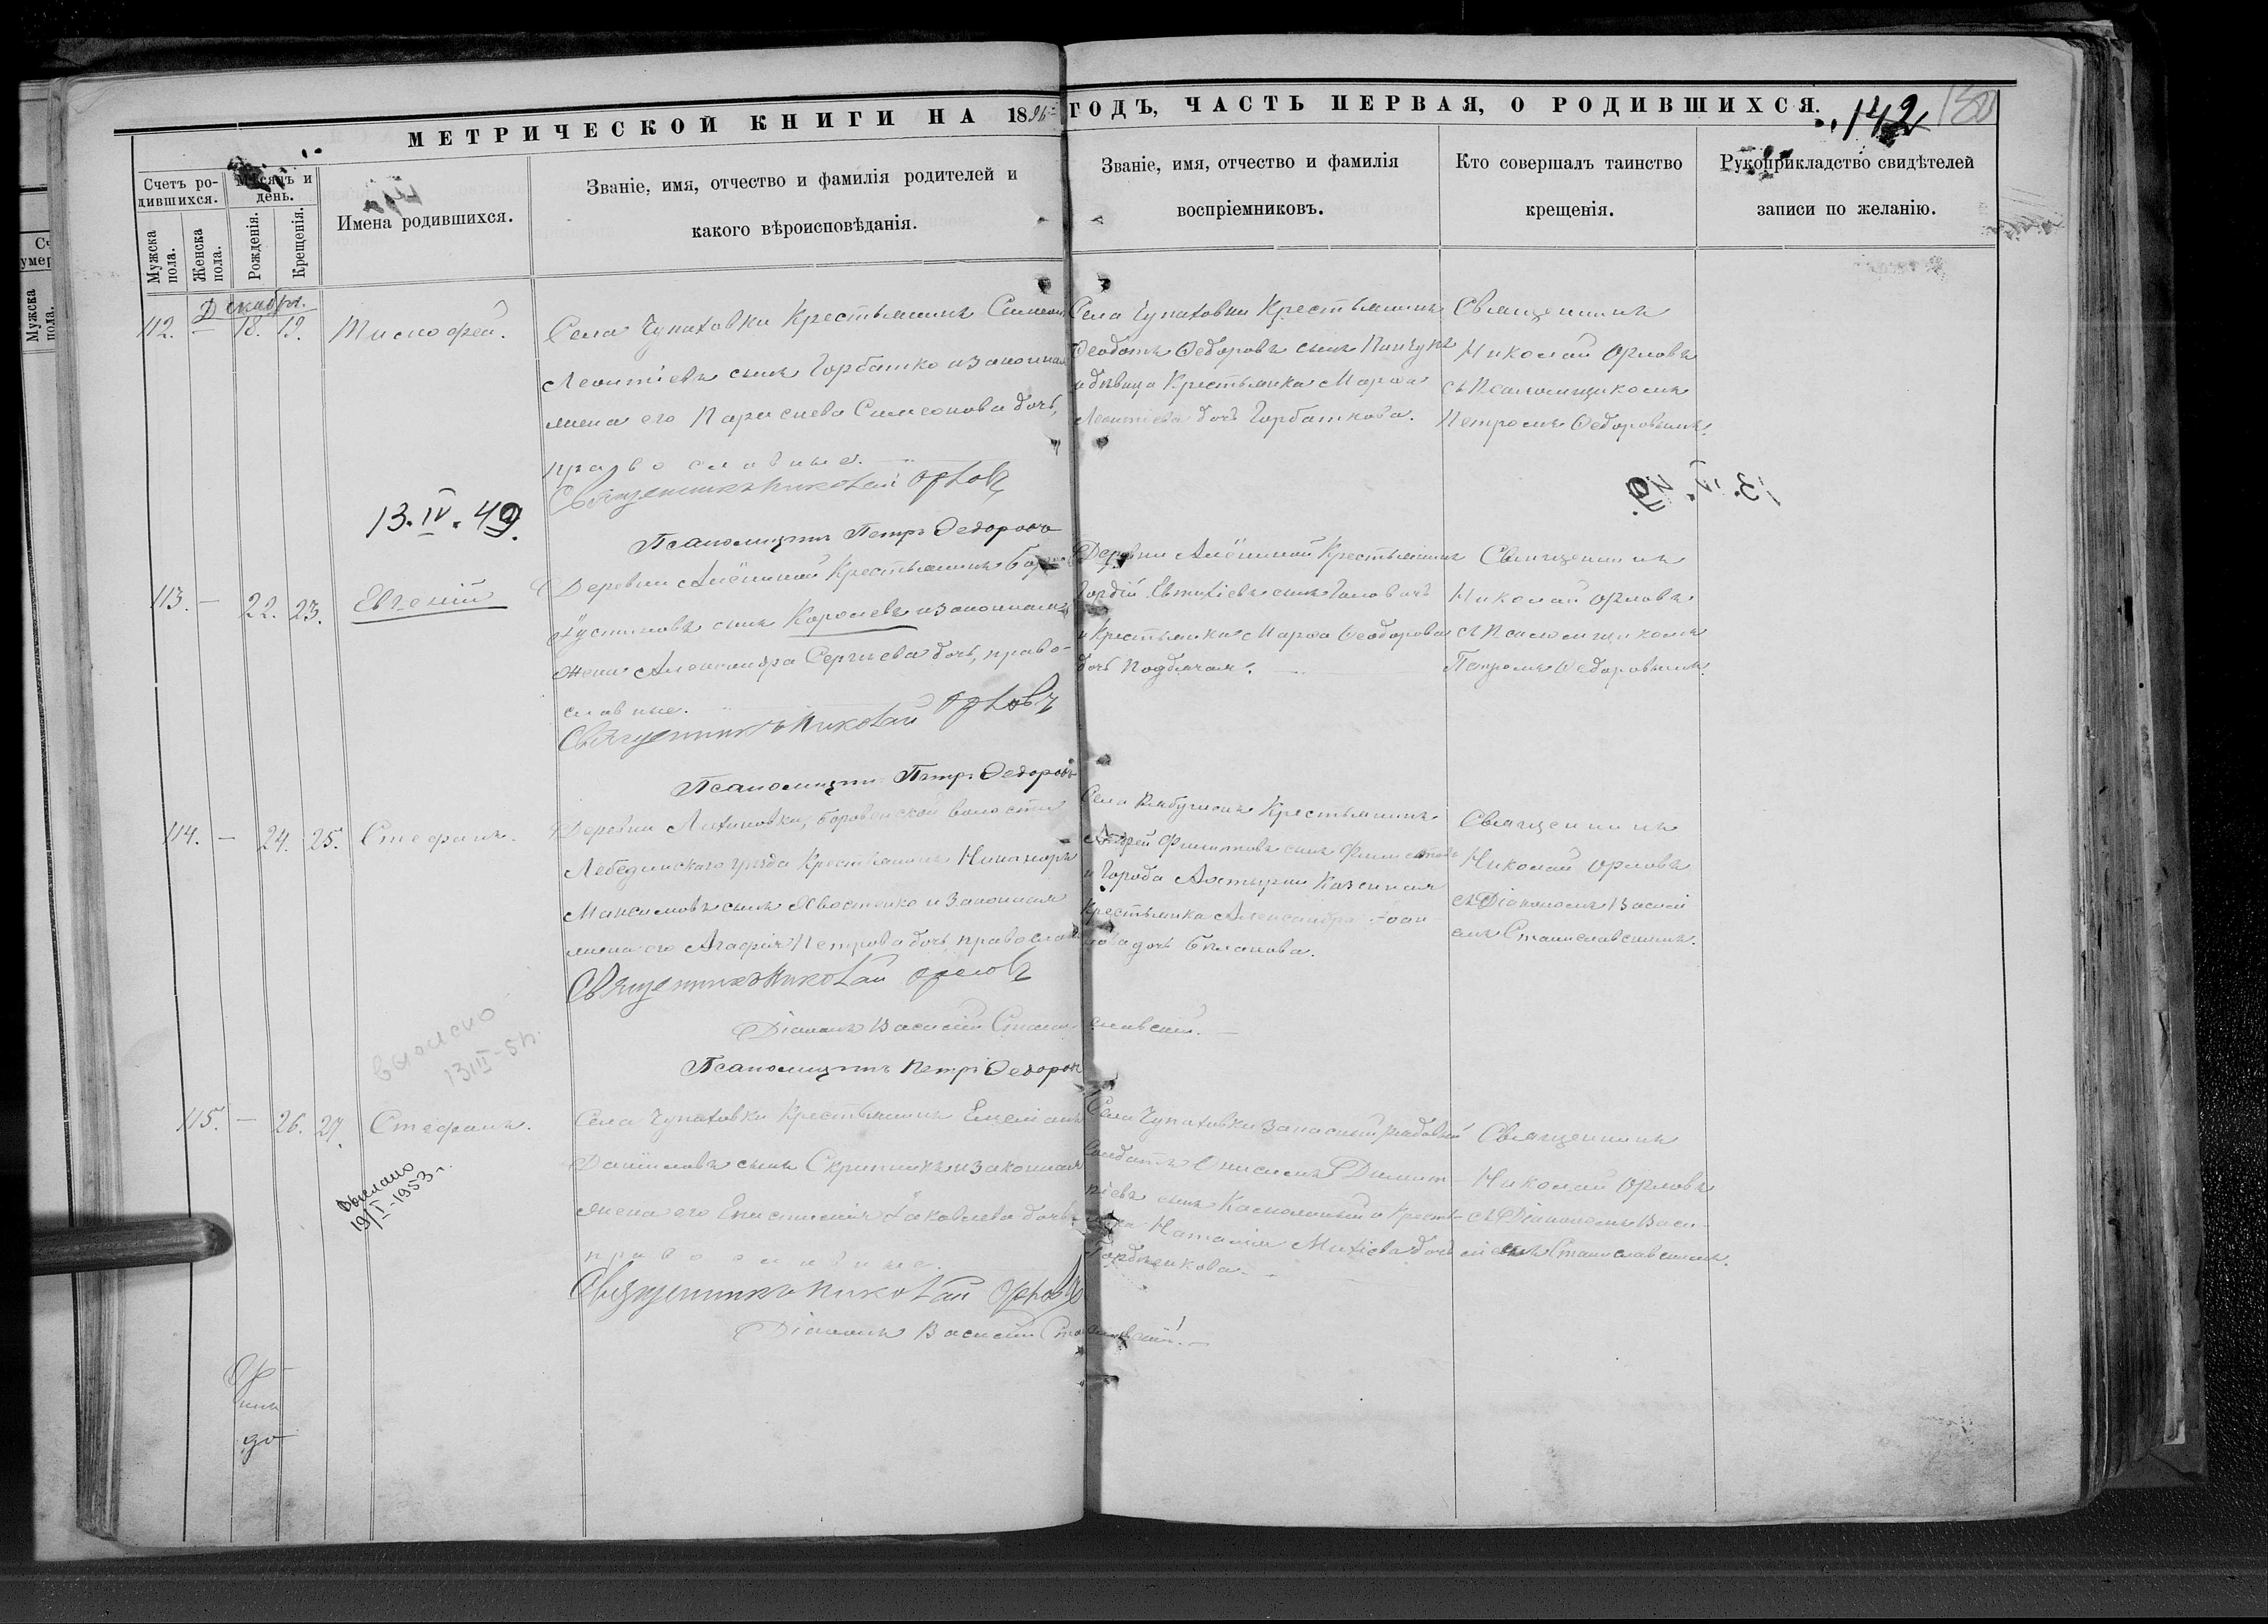 МЕТРИЧЕСКОЙ КНИГИ НА 18 ГОДЪ, ЧАСТЬ ПЕРВАЯ, О РОДИВШИХСЯ.
142
Счетъ ро-
дившихся.
Мужска пола.
Женска пола.
Мѣсяцъ и день.
Рожденія.
Крещенія.
Имена родившихся.
Званіе, имя, отчество и фамилія родителей и
какого вѣроисповѣданія.
Званіе, имя, отчество и фамилія
воспріемниковъ.
Кто совершалъ таинство
крещенія.
Рукоприкладство свидѣтелей
записи по желанію.
Декабрь.
112. — 18. 19. Тимофей.
Села Чупаховки Крестьянинъ
Леонтіевъ сынъ Горбатко и законная
жена его Симеонова дочь,
православные.
Священникъ Николай Орловъ
Псаломщикъ Петръ Ѳедоровъ
Села Чупаховки Крестьянинъ
Ѳеодотъ Ѳедоровъ сынъ
и дѣвица Крестьянка Марѳа
Леонтіева дочь Горбаткова.
Священникъ
Николай Орловъ
съ Псаломщикомъ
Петромъ Ѳедоровымъ.
13.IV.49.
113. — 22. 23. Евгеній
Деревни Крестьянинъ
Іустиновъ сынъ Королевъ и законная
жена Александра Сергіева дочь, право-
славные.
Священникъ Николай Орловъ
Псаломщикъ Петръ Ѳедоровъ
Деревни Крестьянинъ
Гордій Евтихіевъ сынъ
и Крестьянка Марѳа Ѳеодорова
дочь
Священникъ
Николай Орловъ
съ Псаломщикомъ
Петромъ Ѳедоровымъ.
114. — 24. 25. Стефанъ.
Деревни волости
Лебединскаго уѣзда Крестьянинъ Никаноръ
Максимовъ сынъ Хвостенко и законная
жена его Агафія Петрова дочь, православ
Священникъ Николай Орловъ
Діаконъ Василій Станиславскій.
Псаломщикъ Петръ Ѳедоровъ
Села Крестьянинъ
Андрей Филиповъ сынъ
и Города Ахтырки Казенная
Крестьянка Александра Іоан-
нова дочь
Священникъ
Николай Орловъ
съ Діакономъ Василі-
емъ Станиславскимъ.
выслано
13III-51г.
115. — 26. 27. Стефанъ.
Села Чупаховки Крестьянинъ Емеліанъ
Даніиловъ сынъ Скрипникъ и законная
жена его Епистимія Іаковлева дочь
православные.
Священникъ Николай Орловъ
Діаконъ Василій Станиславскій.
Села Чупаховки запасный рядовой
Солдатъ Онисимъ Димит-
ріевъ сынъ и Кресть-
янка Наталія Михіева дочь
Священникъ
Николай Орловъ
съ Діакономъ Васи-
ліемъ Станиславскимъ.
Выслано
19/I-1953г.